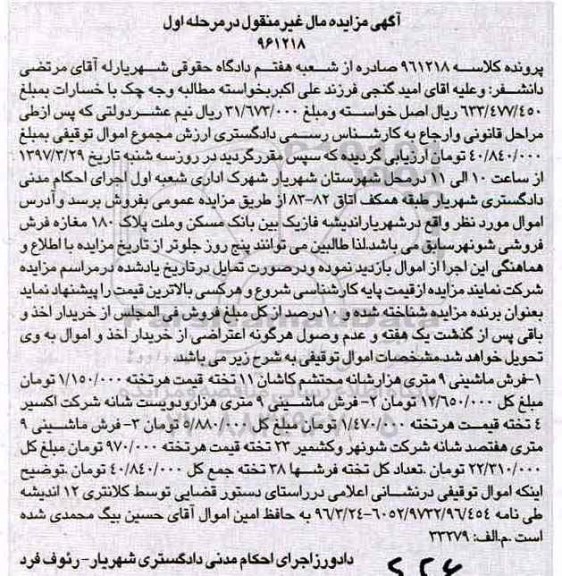 آگهی مزایده مال غیر منقول در مرحله اول
۹۶۱۲۱۸
پرونده کلاسه ۹۶۱۲۱۸ صادره از شعبه هفتم دادگاه حقوقی شهریارله آقای مرتضی
دانشفر: وعلیه اقای امید گنجی فرزند علی اکبربخواسته مطالبه وجه چک با خسارات بمبلغ
۶۳۳/۴۷۷/۴۵۰ ریال اصل خواسته ومبلغ ۳۱/۶۷۳/۰۰۰ ریال نیم عشردولتی که پس ازطی
مراحل قانونی وارجاع به کارشناس رسمی دادگستری ارزش مجموع اموال توقیفی بمبلغ
۴۰/۸۴۰/۰۰۰ تومان ارزیابی گردیده که سپس مقررگردید در روزسه شنبه تاریخ ۱۳۹۷/۳/۲۹
از ساعت ۱۰ الی ۱۱ درمحل شهرستان شهریار شهرک اداری شعبه اول اجرای احکام مدنی
دادگستری شهریار طبقه همکف اتاق ۸۲-۸۳ از طریق مزایده عمومی بفروش برسد وآدرس
اموال مورد نظر واقع درشهریاراندیشه فازیک بین بانک مسکن وملت پلاک ۱۸۰ مغازه فرش
فروشی شونهرسابق می باشد.لذا طالبین می توانند پنج روز جلوتر از تاریخ مزایده با اطلاع و
هماهنگی این اجرا از اموال بازدید نموده ودرصورت تمایل درتاریخ یادشده درمراسم مزایده
شرکت نمایند مزایده ازقیمت پایه کارشناسی شروع و هرکسی بالاترین قیمت را پیشنهاد نماید
بعنوان برنده مزایده شناخته شده و ۱۰درصد از کل مبلغ فروش فی المجلس از خریدار اخذ و
باقی پس از گذشت یک هفته و عدم وصول هرگونه اعتراضی از خریدار اخذ و اموال به وی
تحویل خواهد شد.مشخصات اموال توقیفی به شرح زیر می باشد
۱-فرش ماشینی ۹ متری هزارشانه محتشم کاشان ۱۱ تخته قیمت هرتخته ۱/۱۵۰/۰۰۰ تومان
مبلغ کل ۱۲/۶۵۰/۰۰۰ تومان ۲-فرش ماشینی ۹ متری هزارودویست شانه شرکت اکسیر
۴ تخته قیمت هرتخته ۱/۴۷۰/۰۰۰ تومان مبلغ کل ۵/۸۸۰/۰۰۰ تومان ۳- فرش ماشینی ۹
متری هفتصد شانه شرکت شونهر وکشمیر ۲۳ تخته قیمت هرتخته ۹۷۰/۰۰۰ تومان مبلغ کل
۲۲/۳۱۰/۰۰۰ تومان .تعداد کل تخته فرشها ۳۸ تخته جمع کل ۴۰/۸۴۰/۰۰۰ تومان .توضیح
اینکه اموال توقیفی درنشانی اعلامی درراستای دستور قضایی توسط کلانتری ۱۲ اندیشه
طی نامه ۶۰۵۲/۹۷۳۲/۹۶/۴۵۴-۹۶/۳/۲۴ به حافظ امین اموال آقای حسین بیگ محمدی شده
است .م.الف: ۳۳۲۷۹
دادورزاجرای احکام مدنی دادگستری شهریار- رئوف فرد